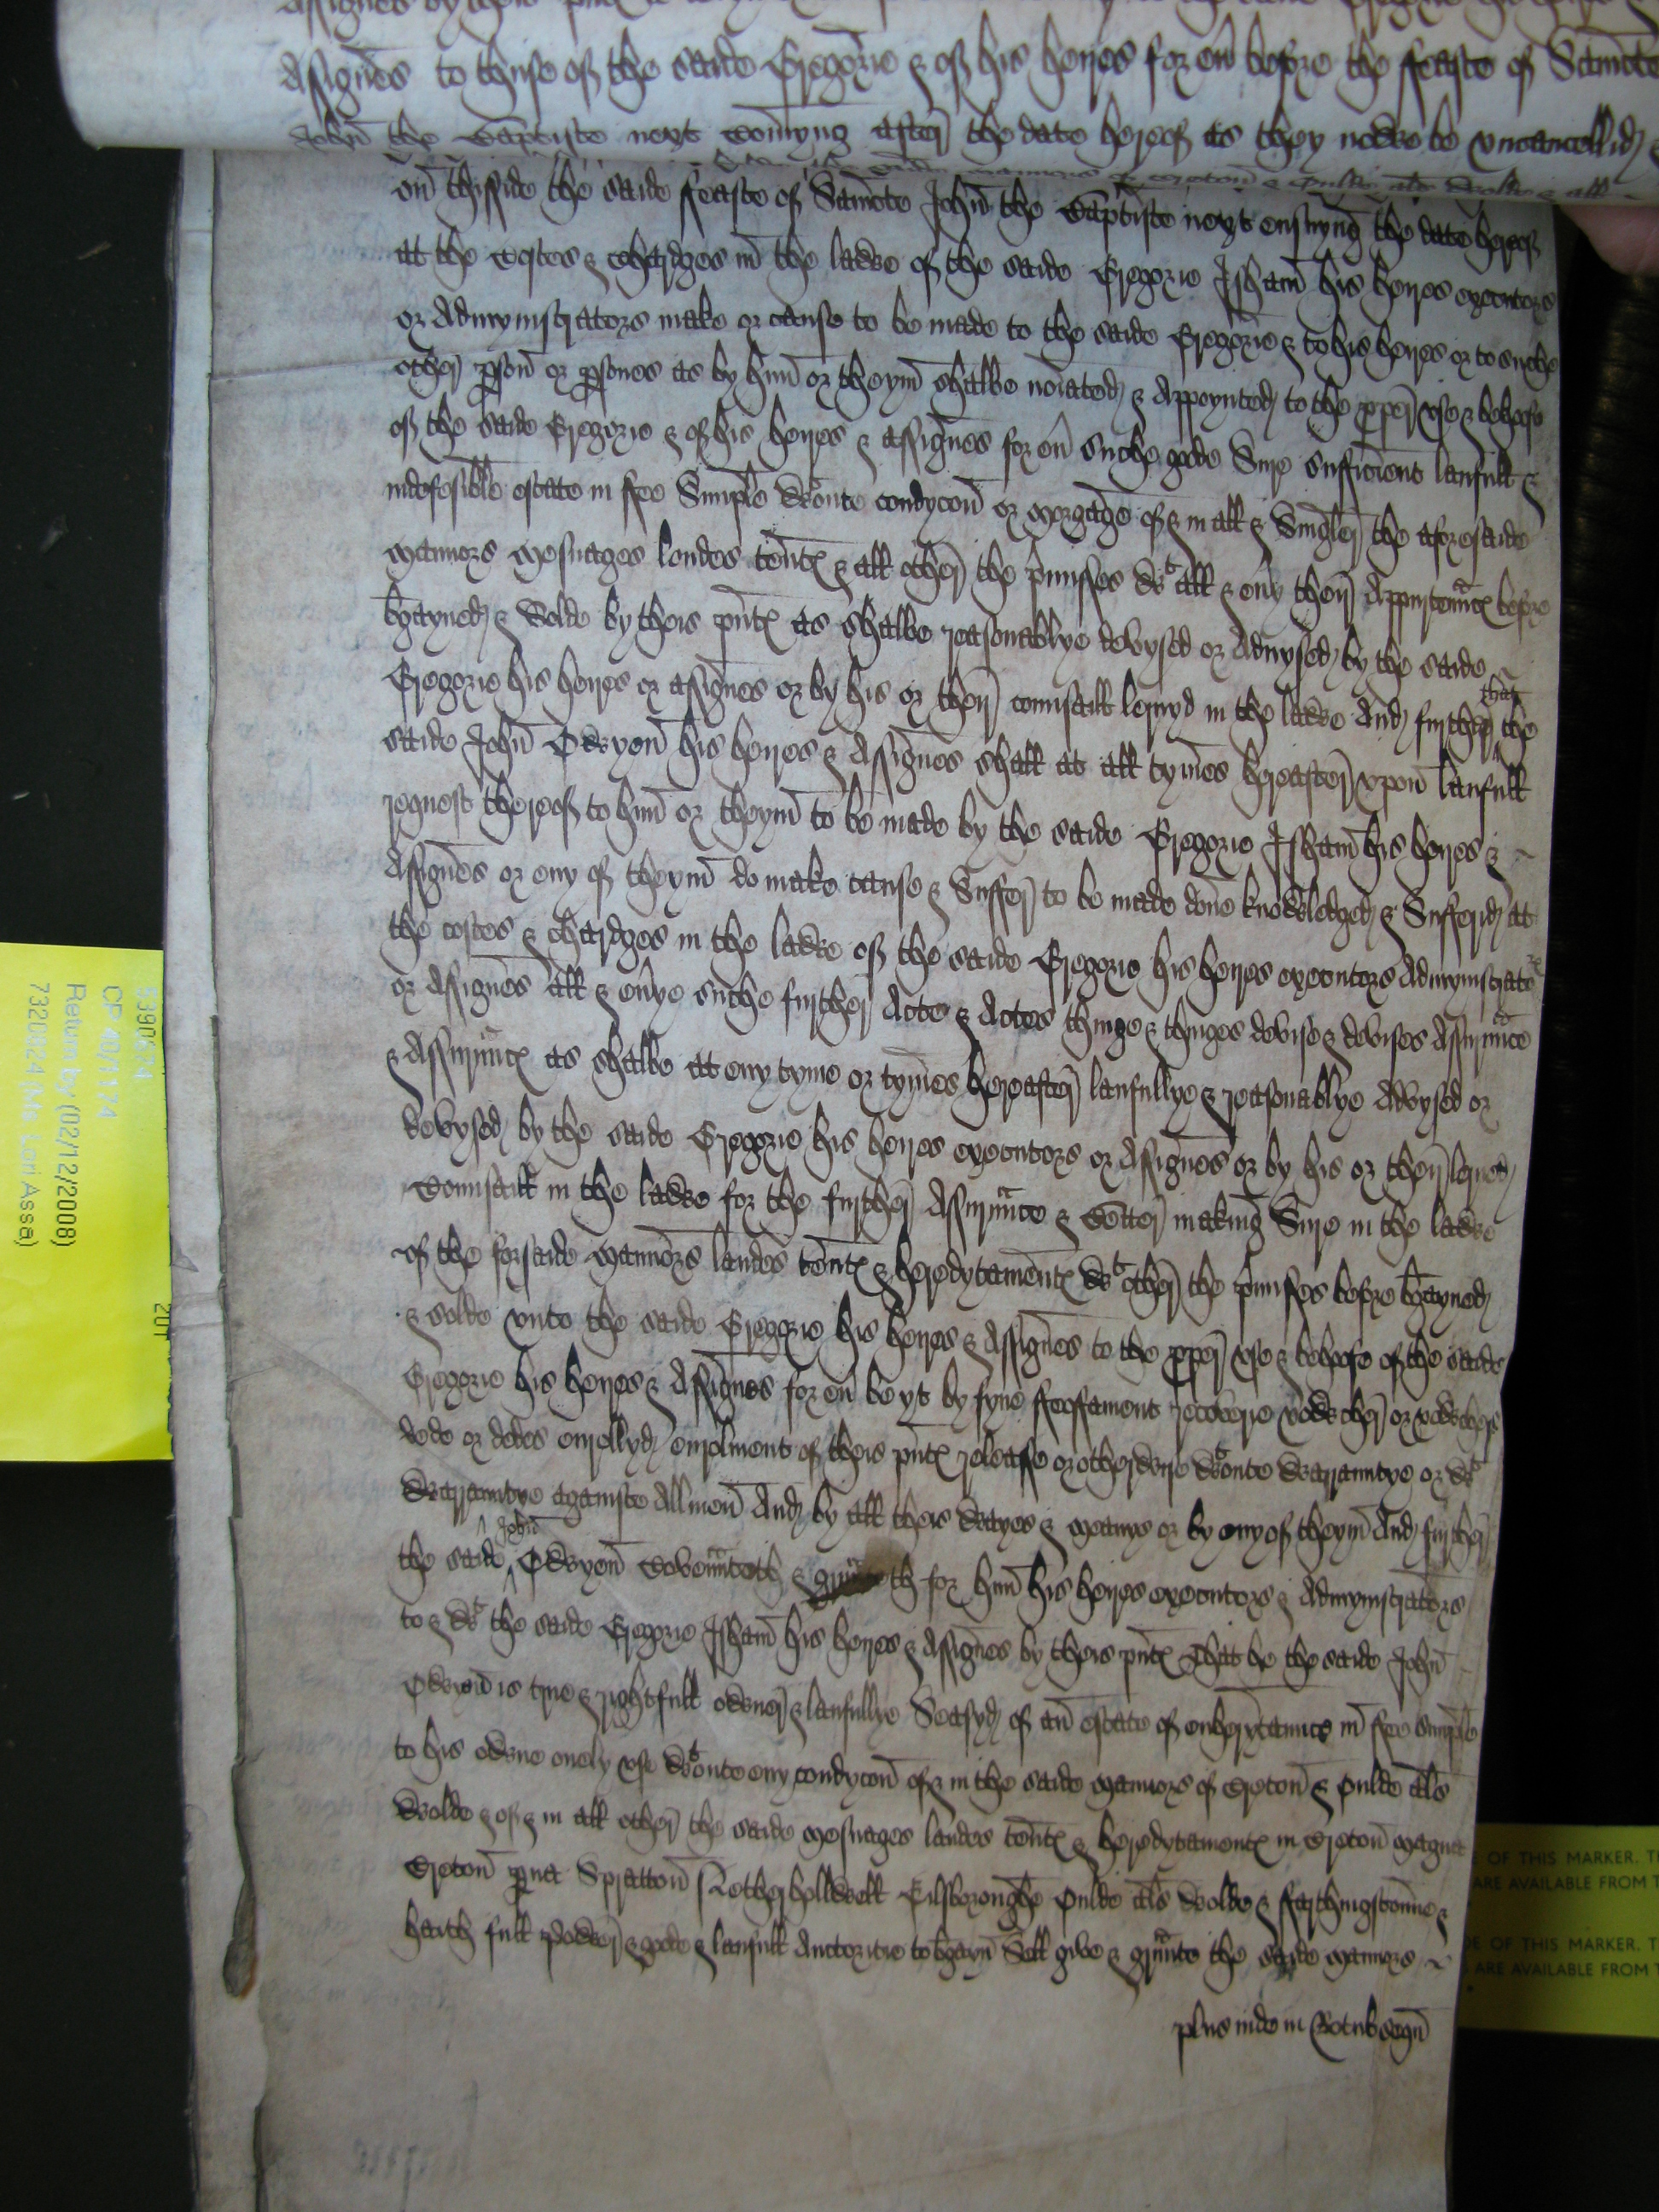 Assignes to thuse of the saide Gregorie & of his heires for eu' before the ffeaste of Saincte
John the Baptiste next comyng after the date hereof as they nowe be vncancellid &
on thisside the saide ffeaste of Saincte John the Baptiste next ensuyng the date hereof
at the Costes & chardges in the lawe of the saide Gregorie Isham his heires executors
or Admynistrators make or cause to be made to the saide Gregorie & to his heires or to suche
other p'son or p'sones as by him or theym shalbe noiated & Appoynted to the pper vse & behofe
of the saide Gregorie & of his heires & assignes for eu' suche goode Sure sufficient laufull &
indefesible estate in ffee Simple wtoute condycon or morgage of & in all & Singler the aforesaide
mannors mesuages londes tent & all other the p'misses wt all & eu'y their Appurtennct before
bgayned & Solde by theis pnt as shalbe reasonablye devysed or Aduysed by the saide
Gregorie his heires or assignes or by his or their counsaill lernyd in the lawe And further that the
saide John Owyon his heires & Assignes shall at all tymes hereafter vpon laufull
request thereof to him or theym to be made by the saide Gregorie Isham his heires &
Assignes or eny of theym do make cause & Suffer to be made done knowledged & Sufferid at
the costes & chardges in the lawe of the saide Gregorie his heires executors Admynistrators
or Assignes all & eu'ye suche further Acte & Actes thinge & thinges devise & devises Assurnce
& Assurnct as shalbe at eny tyme or tymes hereafter laufullye & reasonablye Advysed or
devysed by the saide Gregorie his heires executors or Assignes or by his or their lerned
Counsaill in the lawe for the further Assurnce & Better making Sure in the lawe
of the forsaide mannors landes tent & heredytament wt other the p'misses before bgayned
& solde vnto the saide Gregorie his heires & Assignes to the pper vse & behofe of the saide
Gregorie his heires & Assignes for eu' be yt by fyne ffeoffament recoverie vowcher or vowchers
dede or dedes enrollyd enrolment of theis pnt release or otherwise wtoute warrauntye or wt
warrauntye againste All men And by all theis wayes & meanys or by eny of theym And further
the saide John Owyon Covennteth & grunteth for him his heires executors & Admynistrators
to & wt the saide Gregorie Isham his heires & Assignes by theis pnt That he the saide John
Owyon is true & rightfull owner & laufullye Seasyd of an estate of enherytaunce in ffee simple
to his owne onely vse wtoute eny condycon of & in the saide mannors of Creton & Pulde als
Wolde & of & in all other the saide mesuages landes tent & heredytament in Creton magna
Creton pua Spratton Hothorpholl Gilsboroughe Pulde als Wolde & ffarthingstonne &
haith full power & goode & laufull Auctoritie to bgayn Sell give & grunte the saide mannors
plus inde in Rotulo sequen
5390674
CP 40/1174
Return by (02/12/2008)
7320824 (Ms Lori Assa)
201
E OF THIS MARKER. T
ARE AVAILABLE FROM T
DE OF THIS MARKER. T
S ARE AVAILABLE FROM T